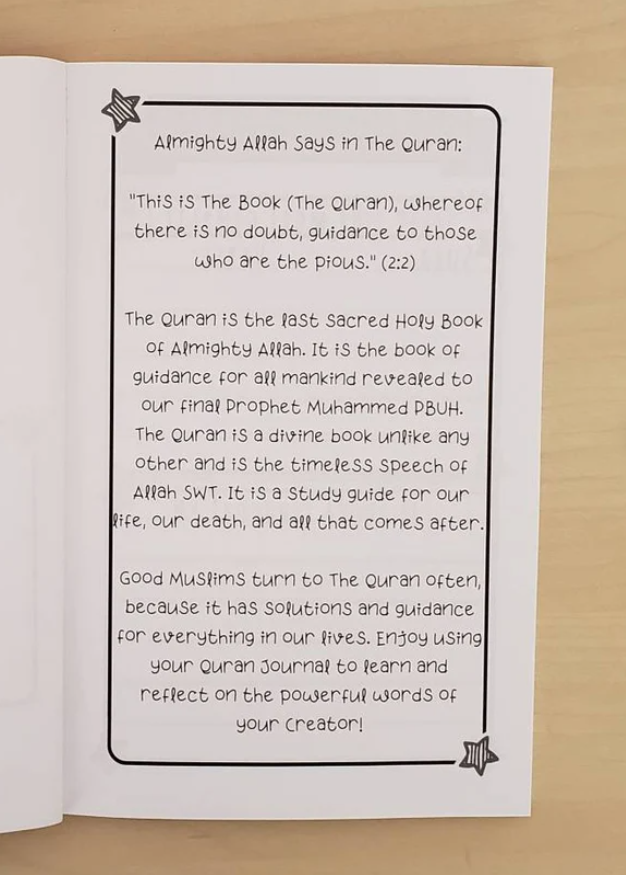 Almighty Allah Says in The Quran:
"This is The Book (The Quran), whereof
there is no doubt, guidance to those
who are the pious." (2:2)
The Quran is the last Sacred Holy Book
of Almighty Allah. It is the book of
guidance for all mankind revealed to
our final Prophet Muhammed PBUH.
The Quran is a divine book unlike any
other and is the timeless speech of
Allah SWT. It is a study guide for our
life, our death, and all that comes after.
Good Muslims turn to The Quran often,
because it has solutions and guidance
for everything in our lives. Enjoy using
your Quran Journal to learn and
reflect on the powerful words of
your Creator!